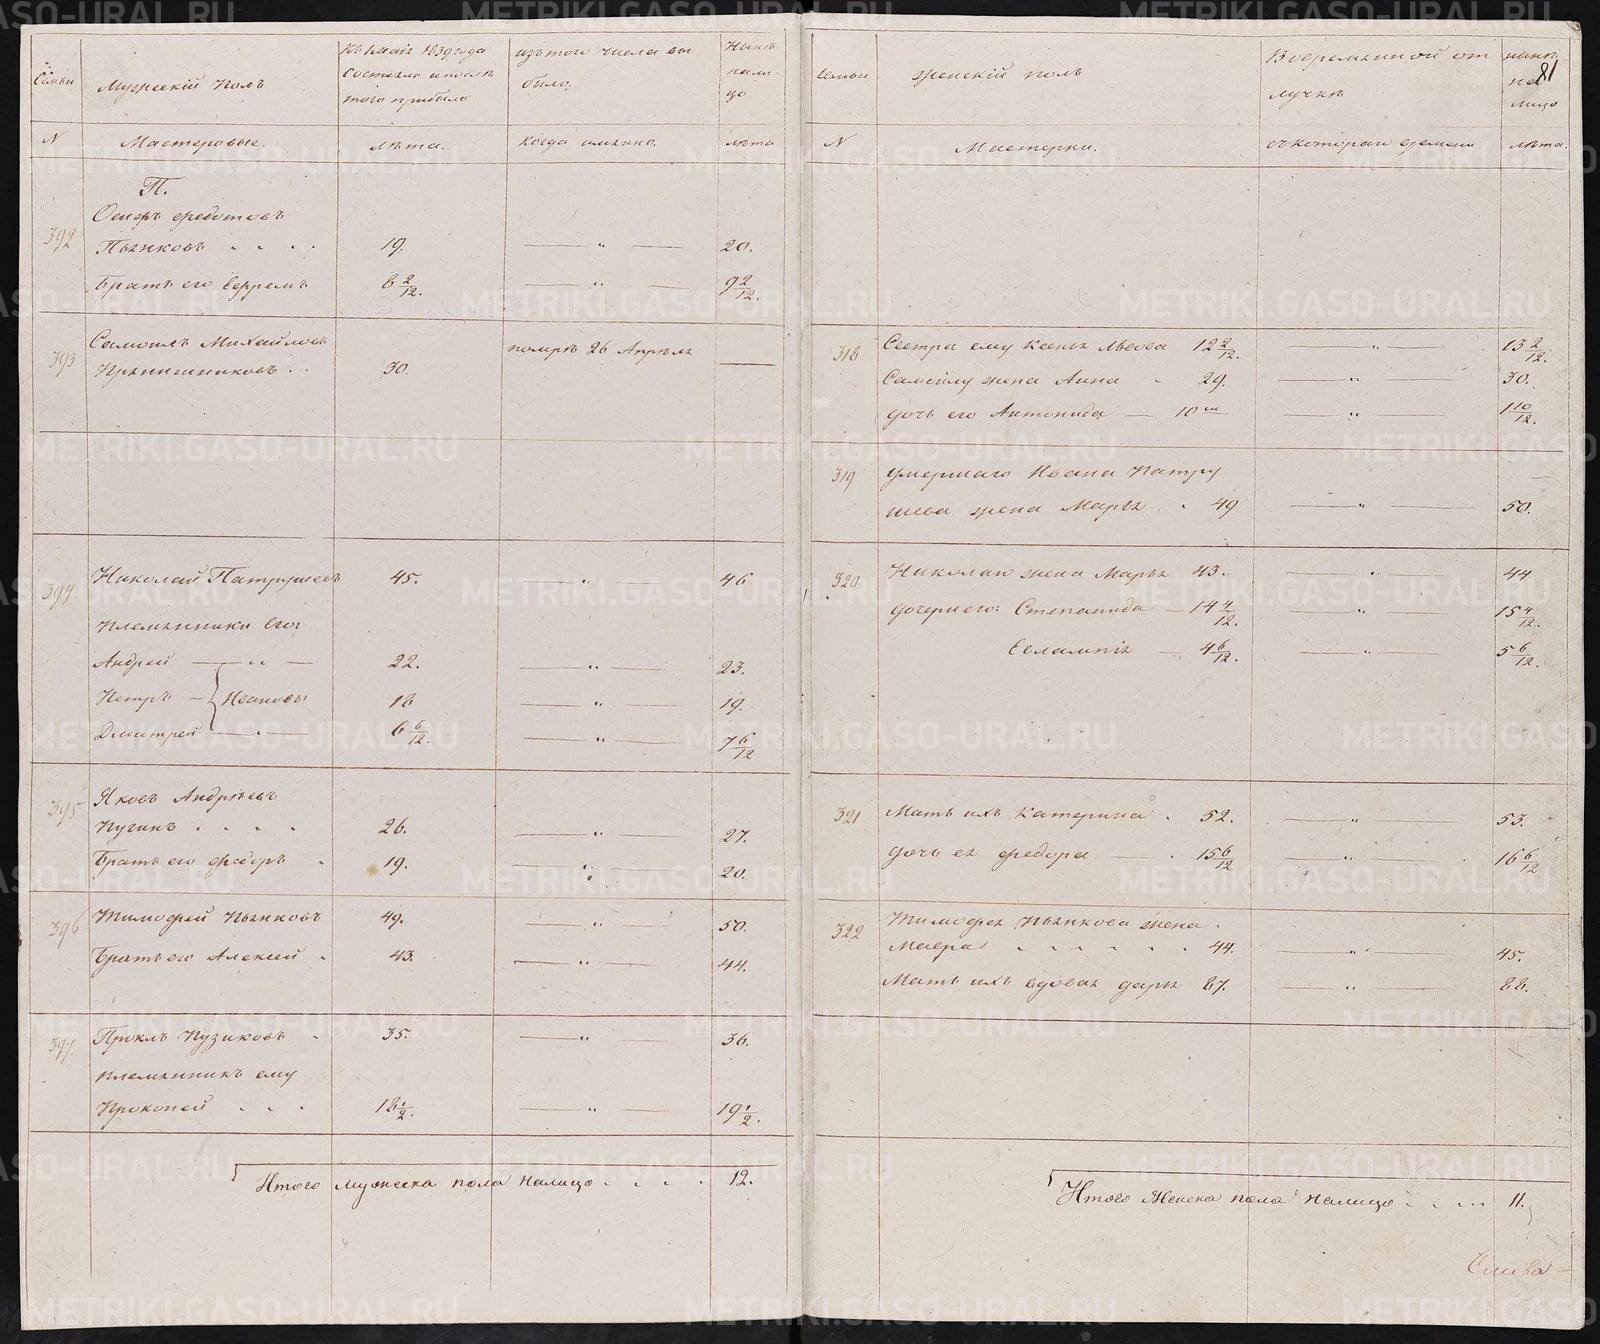 Семьи
Мужескій Полъ
Къ 1839 года
состояло и послѣ
того прибыло
изъ того числа вы
было.
Нынѣ
нали-
цо
N
Мастеровые.
лѣта.
когда именно.
лѣта
П.
392
Федотовъ
Пьянковъ . . . . 19. — " — 20.
Братъ его Ефремъ 8 2/12. — " — 9 2/12.
393
Самоилъ Михайловъ
Прянишниковъ . . 30. помре 26 Апрѣля —
394
Николай Патрушевъ 45. " 46
Племянники Его:
Андрей — " — 22. — " — 23.
Петръ — Ивановы 18 — " — 19.
Дмитрей — " — 6 6/12. — " — 7 6/12
395
Яковъ Андрѣевъ
Пугинъ . . . . 26. — " — 27.
Братъ его Федоръ . 19. — " — 20.
396
Тимофей Пьянковъ 49. — " — 50.
Братъ его Алексей . 43. — " — 44.
397
Проклъ Пузиковъ . 35. — " — 36.
племянникъ ему
Прокопей . . . 18 1/2. — " — 19 1/2.
Итого мужеска пола налицо . . . . 12.
81
Семьи
женскій полъ
Во временной от
лучкѣ
нынѣ
на
лицо
N
Мастерки.
съ котораги времени
лѣта.
318
Сестра ему Ксенья Львова 12 2/12. — " — 13 2/12.
Самойлу жена Анна . 29. — " — 30.
дочь его Антонида — 10 м — " — 1 10/12.
319
умершаго Ивана Патру
шева жена Марья . 49 — " — 50.
320
Николаю жена Марья 43. — " — 44
дочери его: Степанида — 14 4/12. — " — 15 4/12.
Евлампія — 4 6/12. — " — 5 6/12.
321
Мать ихъ Катерина . 52. — " — 53.
дочь ея Федора — . 15 6/12 — " — 16 6/12
322
Тимофея Пьянкова жена .
Мавра . . . . . . 44. — " — 45.
Мать ихъ вдовая дарья 87. — " — 88.
Итого Женска пола налицо . . . . 11.
METRIKI.GASO-URAL.RU